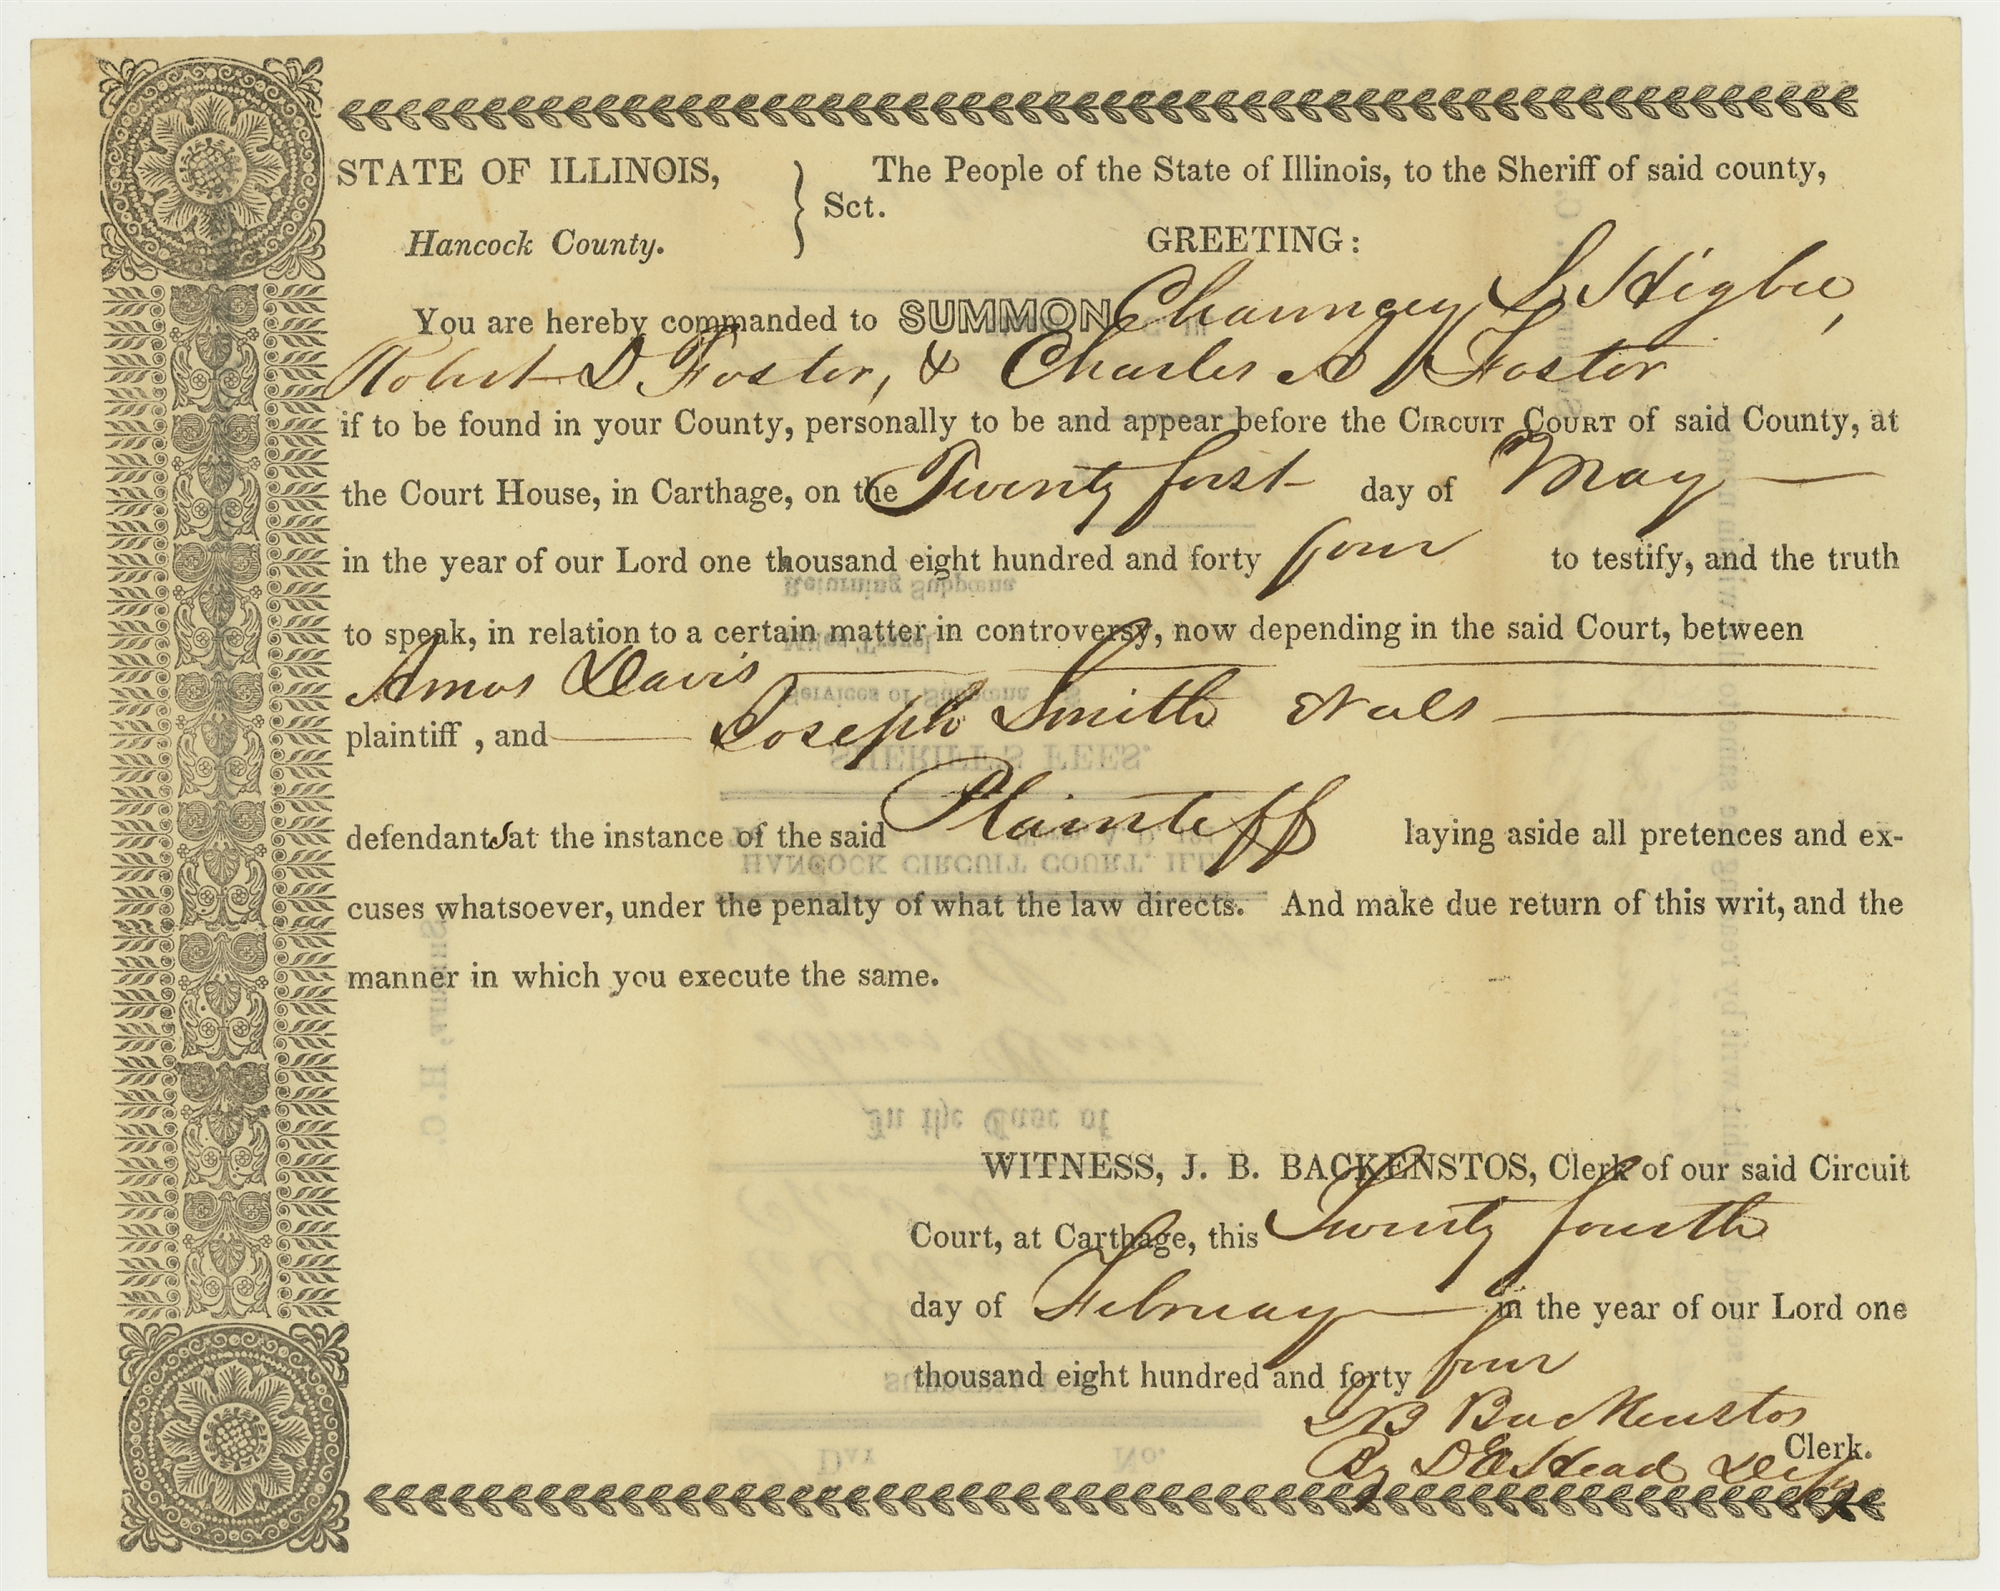 STATE OF ILLINOIS,
Hancock County.
Sct.
The People of the State of Illinois, to the Sheriff of said county,
GREETING:
You are hereby commanded to SUMMON Chauncey L Higbee,
Robert D Foster, & Charles A Foster
if to be found in your County, personally to be and appear before the CIRCUIT COURT of said County, at
the Court House, in Carthage, on the Twenty first day of May
in the year of our Lord one thousand eight hundred and forty four to testify, and the truth
to speak, in relation to a certain matter in controversy, now depending in the said Court, between
Amos Davis
plaintiff , and Joseph Smith
defendants at the instance of the said Plainteff laying aside all pretences and ex-
cuses whatsoever, under the penalty of what the law directs. And make due return of this writ, and the
manner in which you execute the same.
WITNESS, J. B. BACKENSTOS, Clerk of our said Circuit
Court, at Carthage, this Twenty fourth
day of February in the year of our Lord one
thousand eight hundred and forty four
JB Backenstos
Clerk.
By D E Head Depy
Returning Subpœna
Miles Travel
Services of Subpœna
SHERIFF'S FEES.
HANCOCK CIRCUIT COURT, ILL
Amos Davis
In the Case of
Day
No.